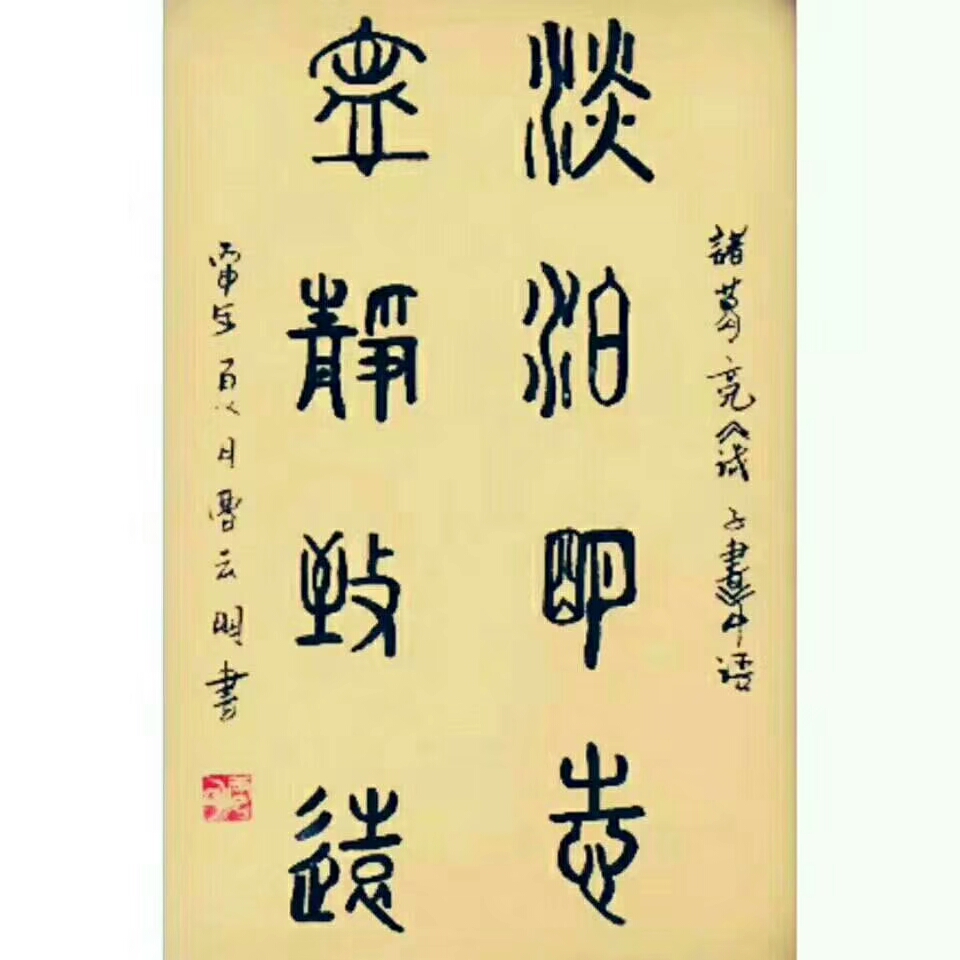 諸葛亮《诫子書》中語
淡泊明志
寧靜致遠
丙申年夏月曹云明書